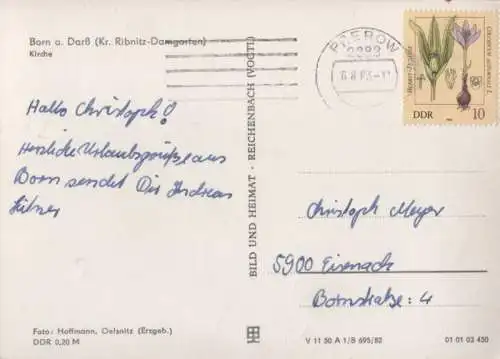 Born a. Darß (Kr. Ribnitz-Damgarten)
Kirche
Hallo Christoph!
Herzliche Urlaubsgrüße aus
Born sendet Dir Andreas
BILD UND HEIMAT · REICHENBACH (VOGTL)
PREROW
2383
DDR
10
Christoph Meyer
5900 Eisenach
Bornstraße: 4
Foto: Hoffmann, Oelsnitz (Erzgeb.)
DDR 0,20 M
V 11 50 A 1/B 695/82
01 01 03 450